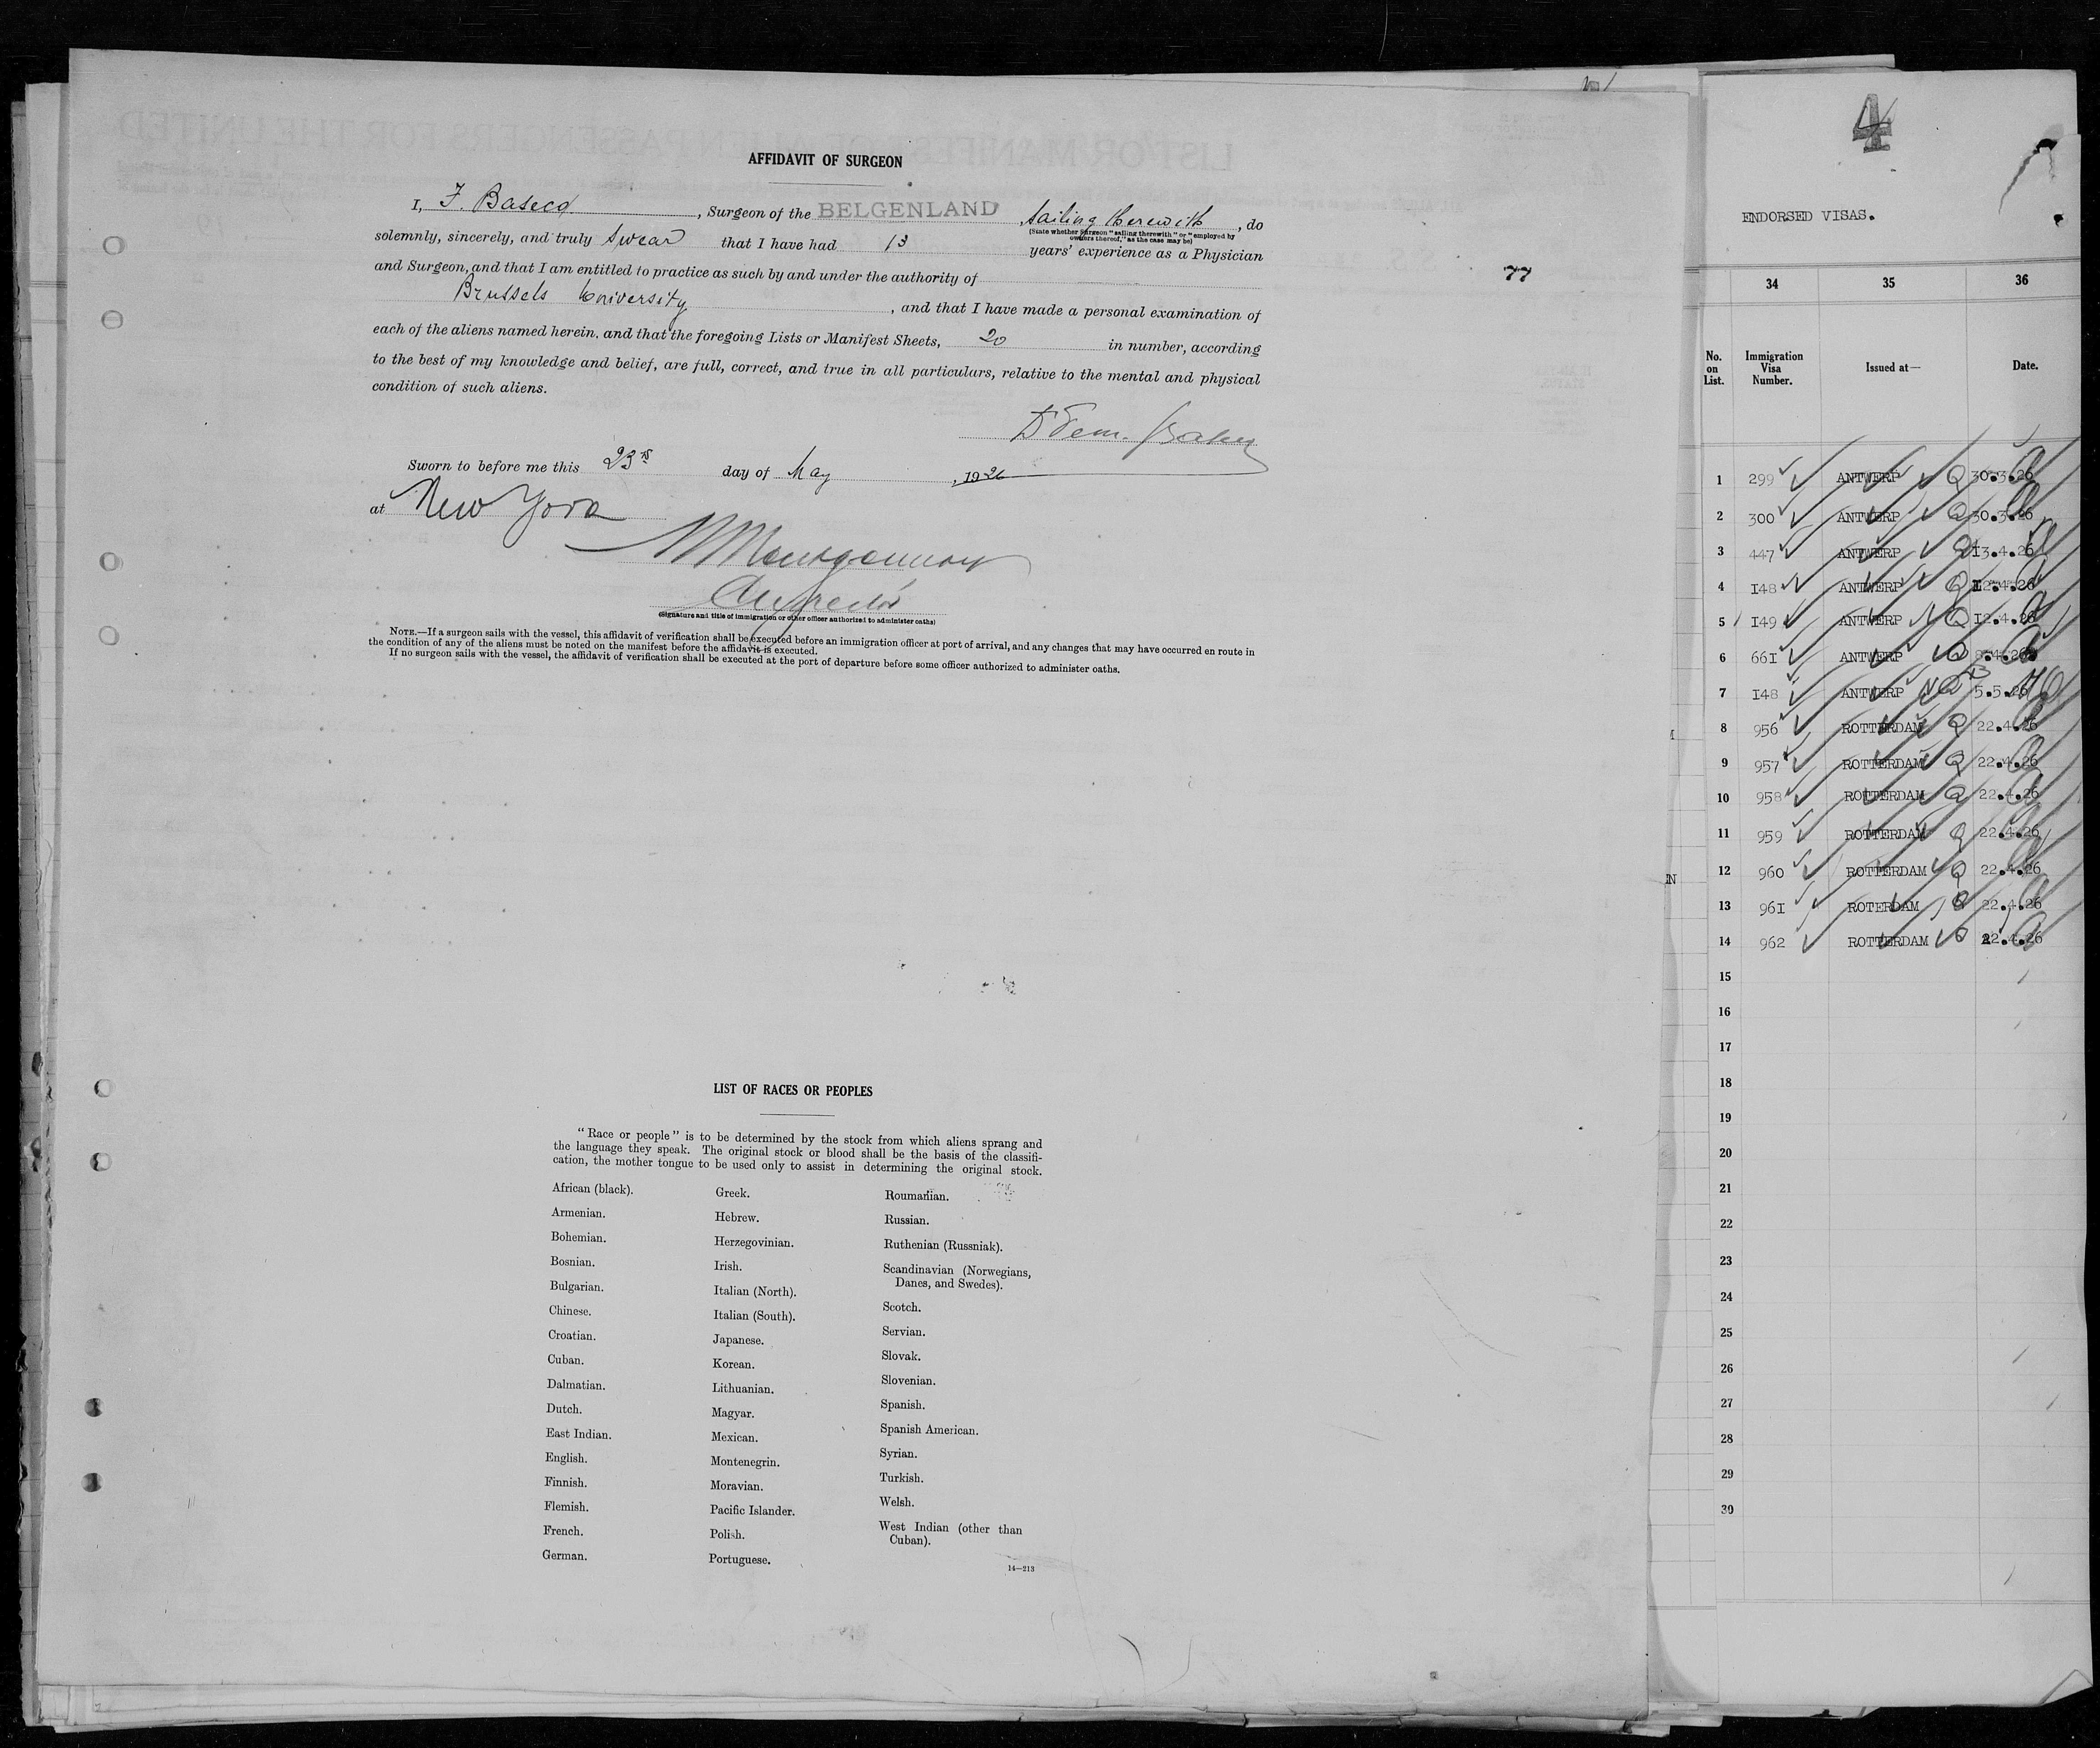 AFFIDAVIT OF SURGEON
I, F. , Surgeon of the BELGENLAND, sailing herewith, do
(State whether Surgeon "sailing therewith" or "employed by
owners thereof," as the case may be)
solemnly, sincerely, and truly swear that I have had 13 years' experience as a Physician
and Surgeon, and that I am entitled to practice as such by and under the authority of
Brussels University, and that I have made a personal examination of
each of the aliens named herein, and that the foregoing Lists or Manifest Sheets, 20 in number, according
to the best of my knowledge and belief, are full, correct, and true in all particulars, relative to the mental and physical
condition of such aliens.
Sworn to before me this 23rd day of May, 1926
at New York
(Signature and title of immigration or other officer authorized to administer oaths)
NOTE.—If a surgeon sails with the vessel, this affidavit of verification shall be executed before an immigration officer at port of arrival, and any changes that may have occurred en route in
the condition of any of the aliens must be noted on the manifest before the affidavit is executed.
If no surgeon sails with the vessel, the affidavit of verification shall be executed at the port of departure before some officer authorized to administer oaths.
77
LIST OF RACES OR PEOPLES
"Race or people" is to be determined by the stock from which aliens sprang and
the language they speak. The original stock or blood shall be the basis of the classifi-
cation, the mother tongue to be used only to assist in determining the original stock.
African (black).
Armenian.
Bohemian.
Bosnian.
Bulgarian.
Chinese.
Croatian.
Cuban.
Dalmatian.
Dutch.
East Indian.
English.
Finnish.
Flemish.
French.
German.
Greek.
Hebrew.
Herzegovinian.
Irish.
Italian (North).
Italian (South).
Japanese.
Korean.
Lithuanian.
Magyar.
Mexican.
Montenegrin.
Moravian.
Pacific Islander.
Polish.
Portuguese.
Roumanian.
Russian.
Ruthenian (Russniak).
Scandinavian (Norwegians,
Danes, and Swedes).
Scotch.
Servian.
Slovak.
Slovenian.
Spanish.
Spanish American.
Syrian.
Turkish.
Welsh.
West Indian (other than
Cuban).
14—213
4
ENDORSED VISAS.
34 35 36
No. on List. Immigration Visa Number. Issued at— Date.
1 299 ANTWERP Q 30.3.26
2 300 ANTWERP Q 30.3.26
3 447 ANTWERP Q 13.4.26
4 148 ANTWERP Q 12.4.26
5 149 ANTWERP Q 12.4.26
6 661 ANTWERP Q .4.26
7 148 ANTWERP 5.5.26
8 956 ROTTERDAM Q 22.4.26
9 957 ROTTERDAM Q 22.4.26
10 958 ROTTERDAM Q 22.4.26
11 959 ROTTERDAM Q 22.4.26
12 960 ROTTERDAM Q 22.4.26
13 961 ROTERDAM Q 22.4.26
14 962 ROTTERDAM Q 22.4.26
15
16
17
18
19
20
21
22
23
24
25
26
27
28
29
30